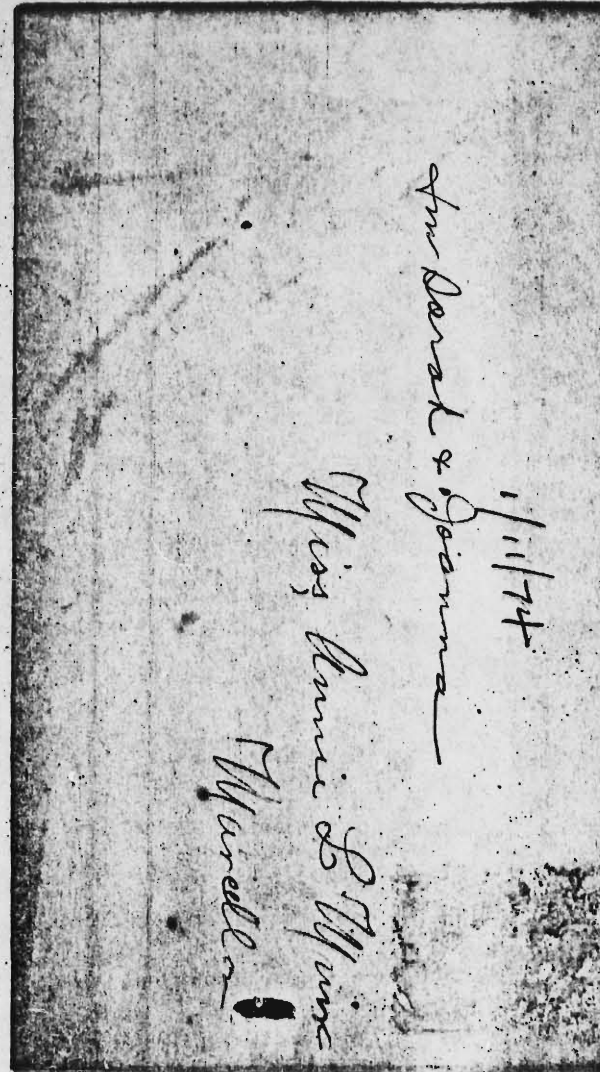 1/11/74
for Sarah & Joanna
Miss Annie L Muir
Marcellon